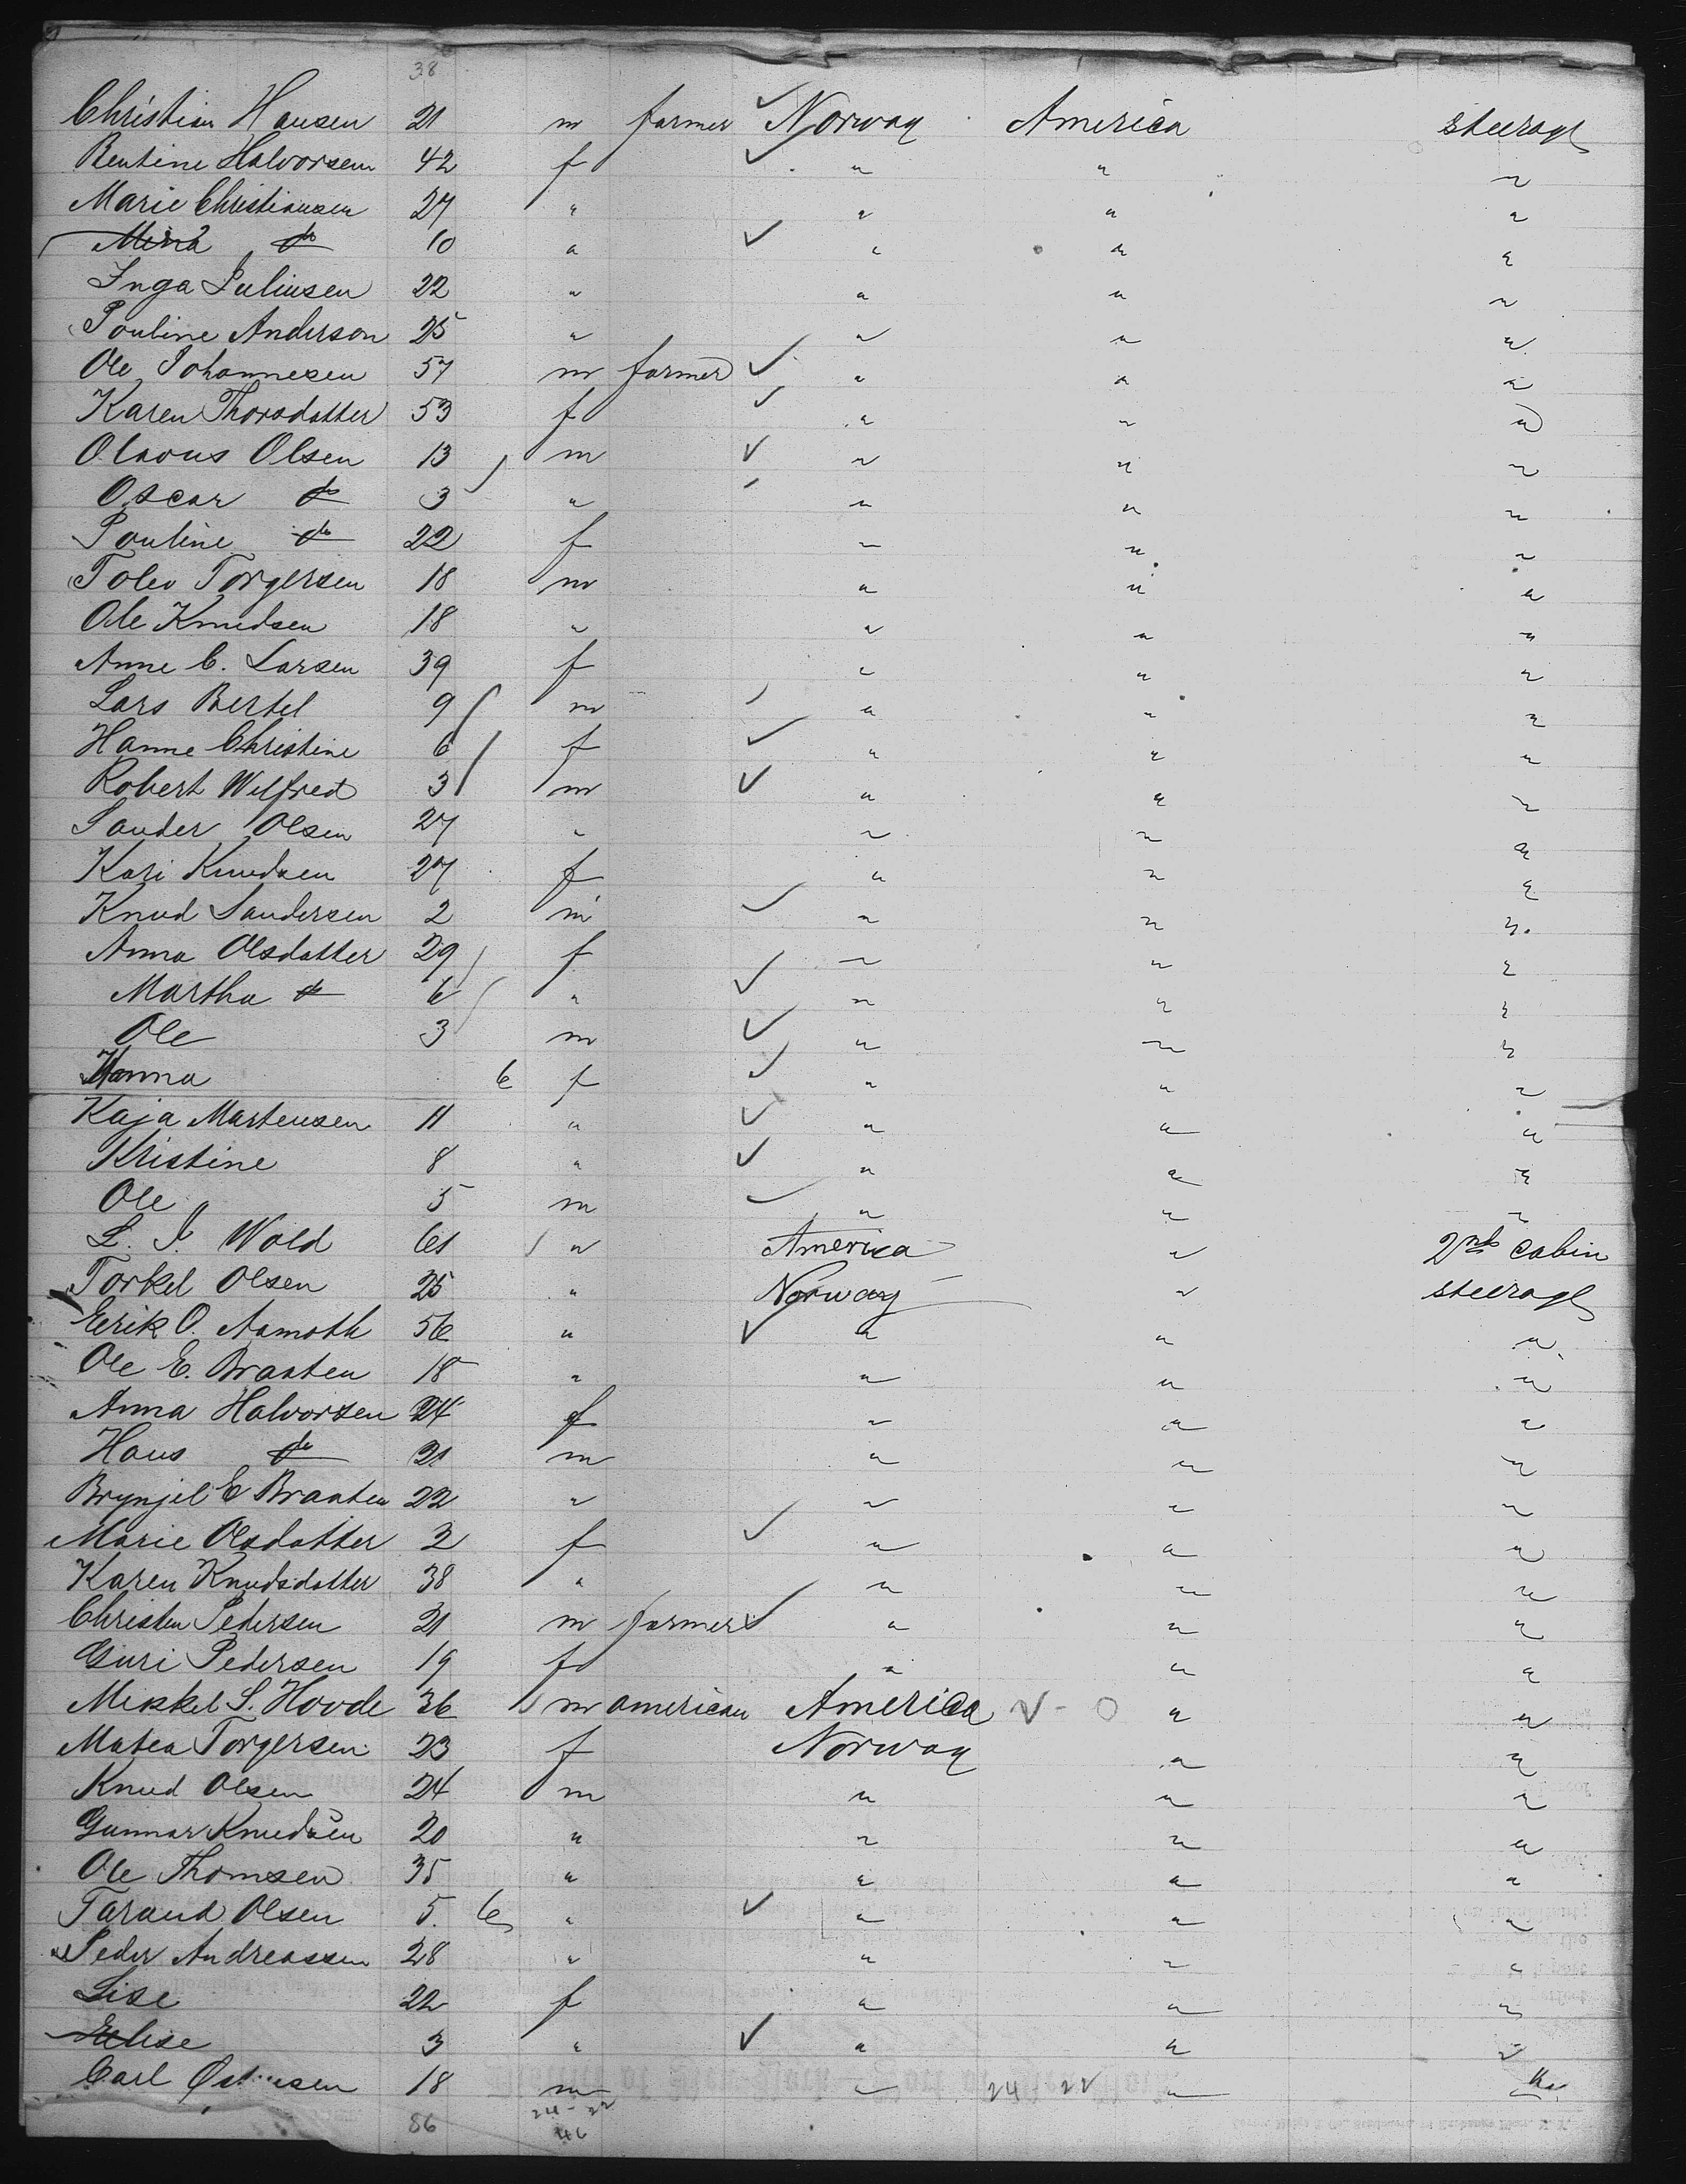 38
Christian Hansen 21 m farmer Norway America steerage
Bentine Halvorsen 42 f " " "
Marie Christiansen 27 " " " "
Mina do 10 " " " "
Inga Juliusen 22 " " " "
Pouline Anderson 25 " " " "
Ole Johannesen 57 m farmer " " "
Karen Thorsdatter 53 f " " "
Olavus Olsen 13 m " " "
Oscar do 3 " " " "
Pouline do 22 f " " "
Tolev Torgersen 18 m " " "
Ole Knudsen 18 " " " "
Anne C. Larsen 39 f " " "
Lars Bertel 9 m " " "
Hanne Christine 6 f " " "
Robert Wilfred 3 m " " "
Sander Olsen 27 " " " "
Kari Knudsen 27 f " " "
Knud Sandersen 2 m " " "
Anna Olsdatter 29 f " " "
Martha do 6 " " " "
Ole 3 m " " "
Hanna 6 f " " "
Kaja Martensen 11 " " " "
Kristine 8 " " " "
Ole 5 m " " "
L. J. Wold 61 " America " 2nd cabin
Torkel Olsen 25 " Norway " steerage
Erik O. Aamoth 56 " " " "
Ole E. Braaten 18 " " " "
Anna Halvorsen 24 f " " "
Hans do 21 m " " "
Brynjel E Braaten 22 " " " "
Marie Olsdatter 2 f " " "
Karen Knudsdatter 38 " " " "
Christen Pedersen 21 m farmer " " "
Guri Pedersen 19 f " " "
Mikkel S. Hovde 36 m american America " "
Matea Torgersen 23 f Norway " "
Knud Olsen 24 m " " "
Gunnar Knudsen 20 " " " "
Ole Thomsen 35 " " " "
Taraud Olsen 5. 6 " " " "
Peder Andreassen 28 " " " "
Lise 22 f " " "
Elise 3 " " " "
Carl 18 m " 24 - 22 " "
86 24 - 22
46